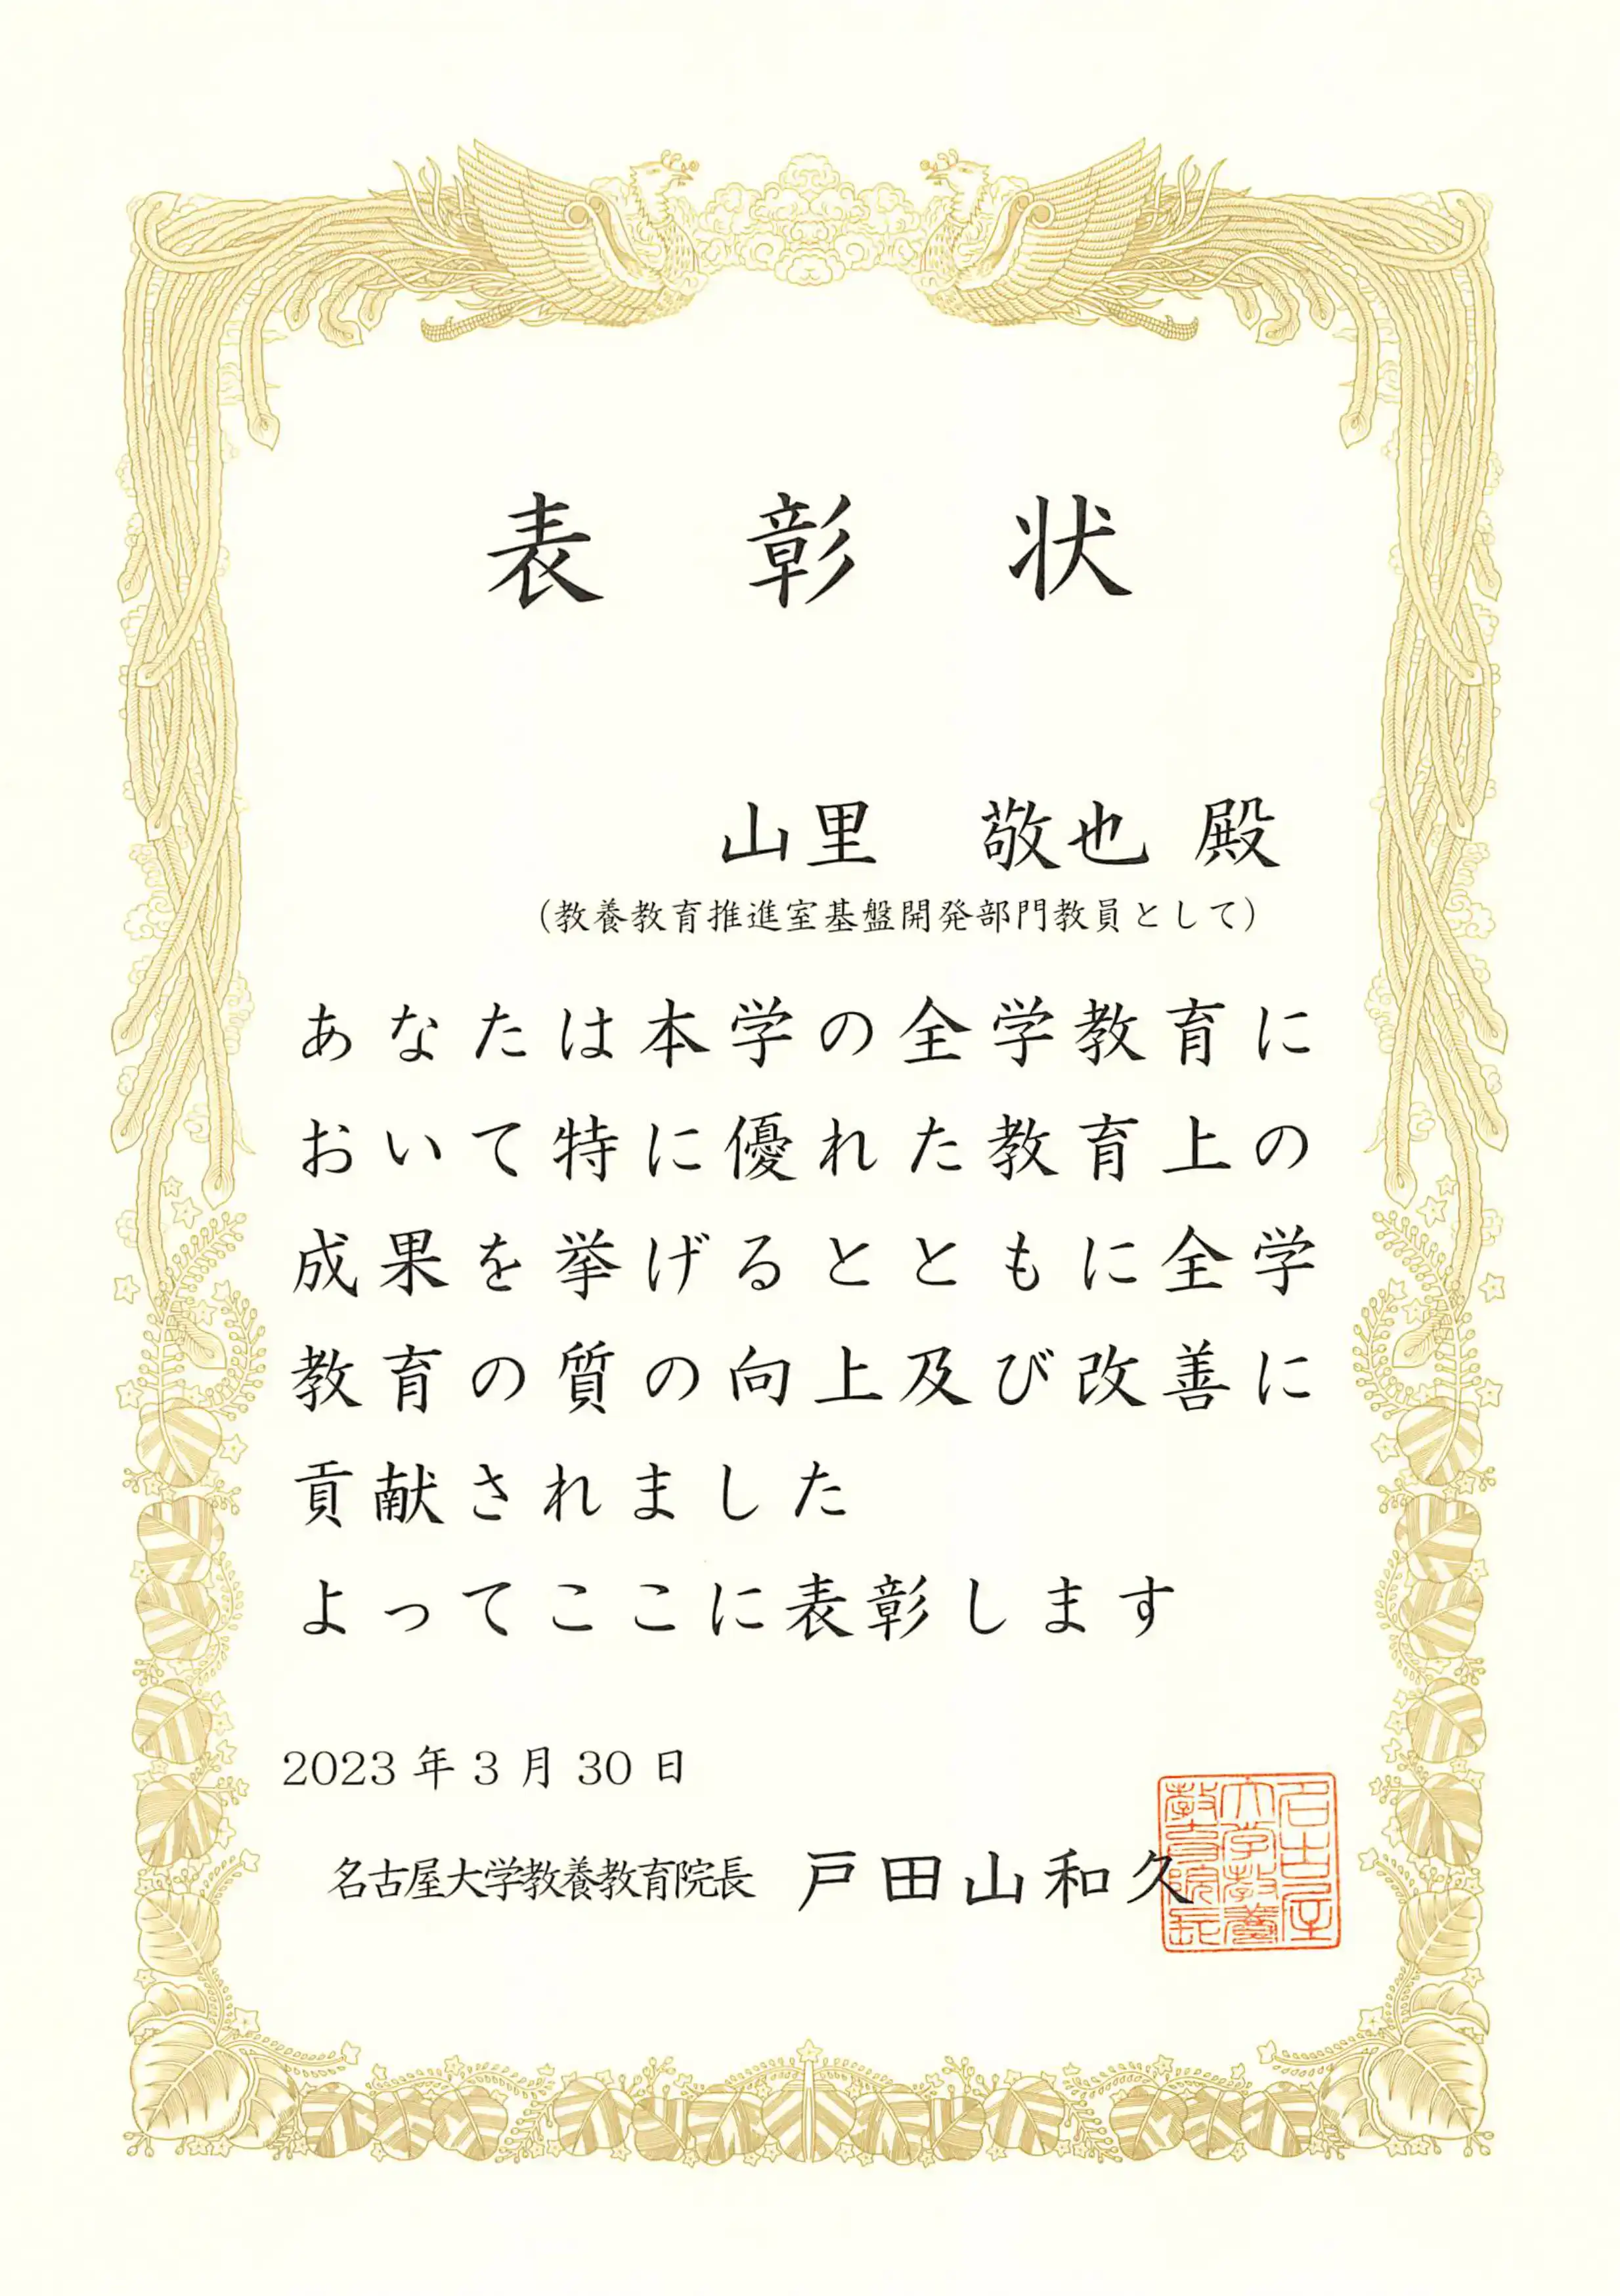 表彰状
山里 敬也 殿
(教養教育推進室基盤開発部門教員として)
あなたは本学の全学教育に
おいて特に優れた教育上の
成果を挙げるとともに全学
教育の質の向上及び改善に
貢献されました
よってここに表彰します
2023年3月30日
名古屋大学教養教育院長 戸田山和久
名古屋
大学教養
教育院長